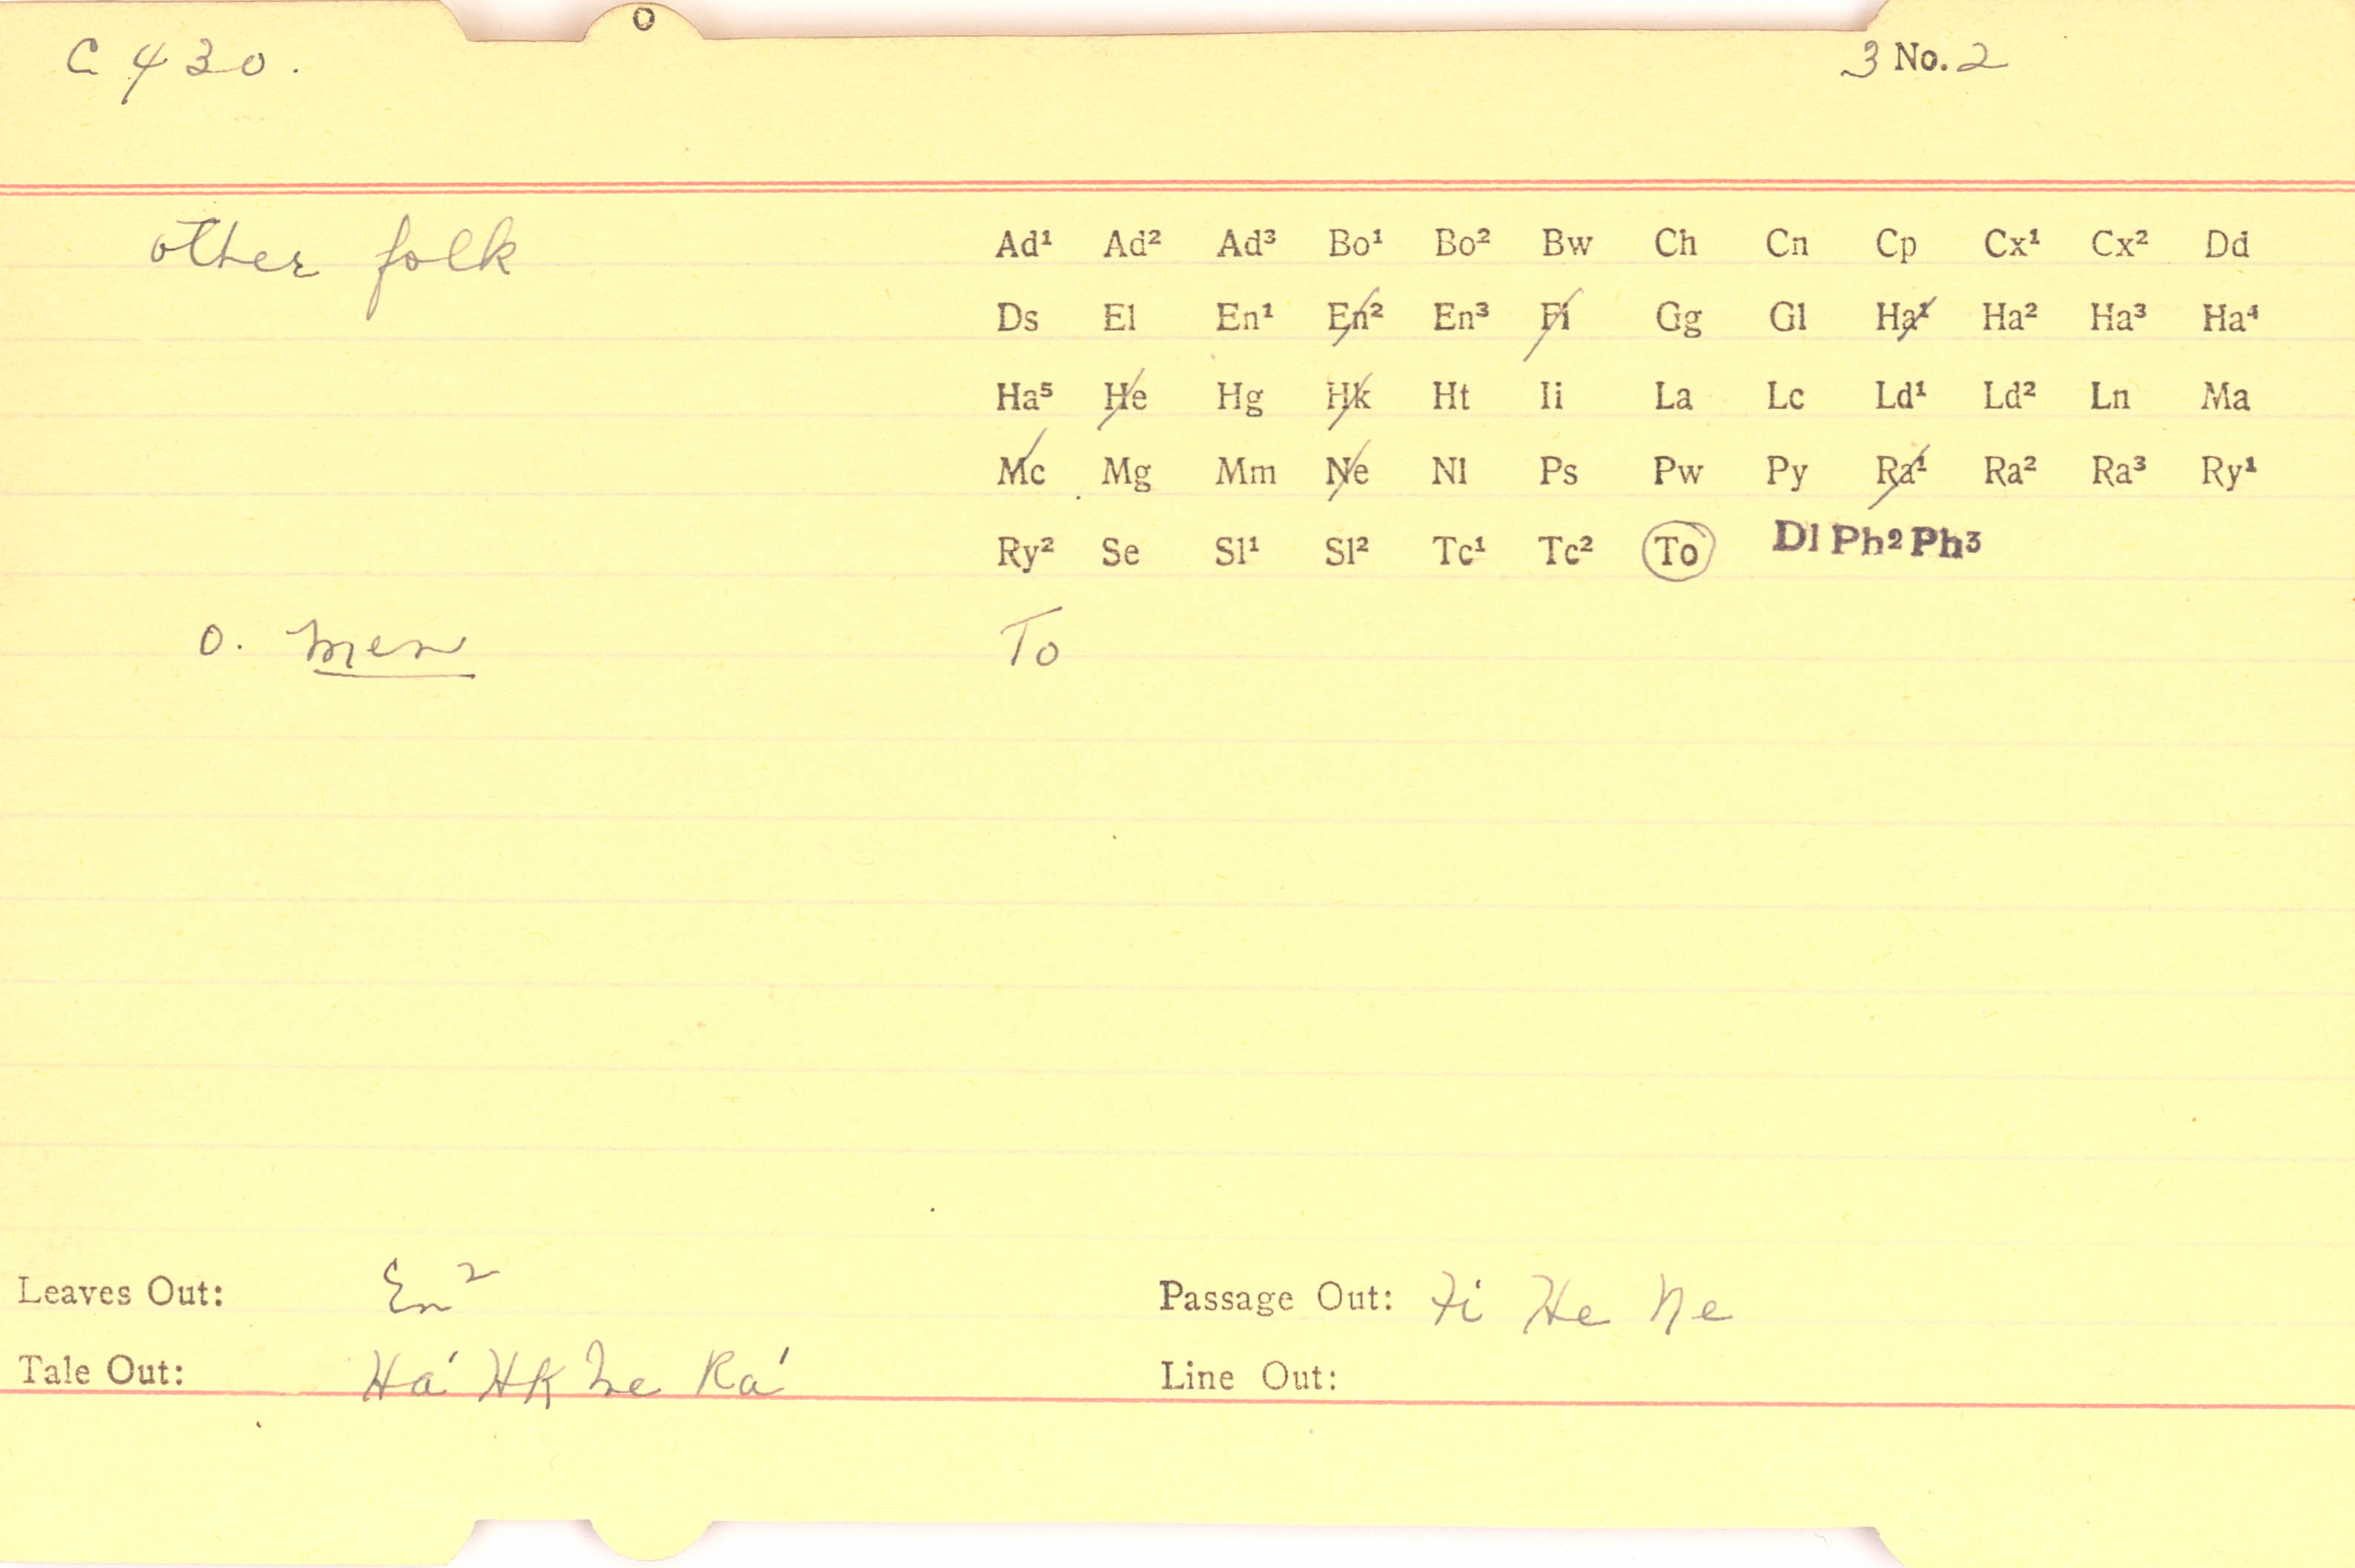 O
C 430.
3 No. 2
other folk
Ad¹ Ad² Ad³ Bo¹ Bo² Bw Ch Cn Cp Cx¹ Cx² Dd
Ds El En¹ En² En³ Fi Gg Gl Ha¹ Ha² Ha³ Ha⁴
Ha⁵ He Hg Hk Ht Ii La Lc Ld¹ Ld² Ln Ma
Mc Mg Mm Ne Nl Ps Pw Py Ra¹ Ra² Ra³ Ry¹
Ry² Se Sl¹ Sl² Tc¹ Tc² To Dl Ph² Ph³
o. men To
Leaves Out: En² Passage Out: Fi He Ne
Tale Out: Ha¹ Hk Mc Ra¹ Line Out: